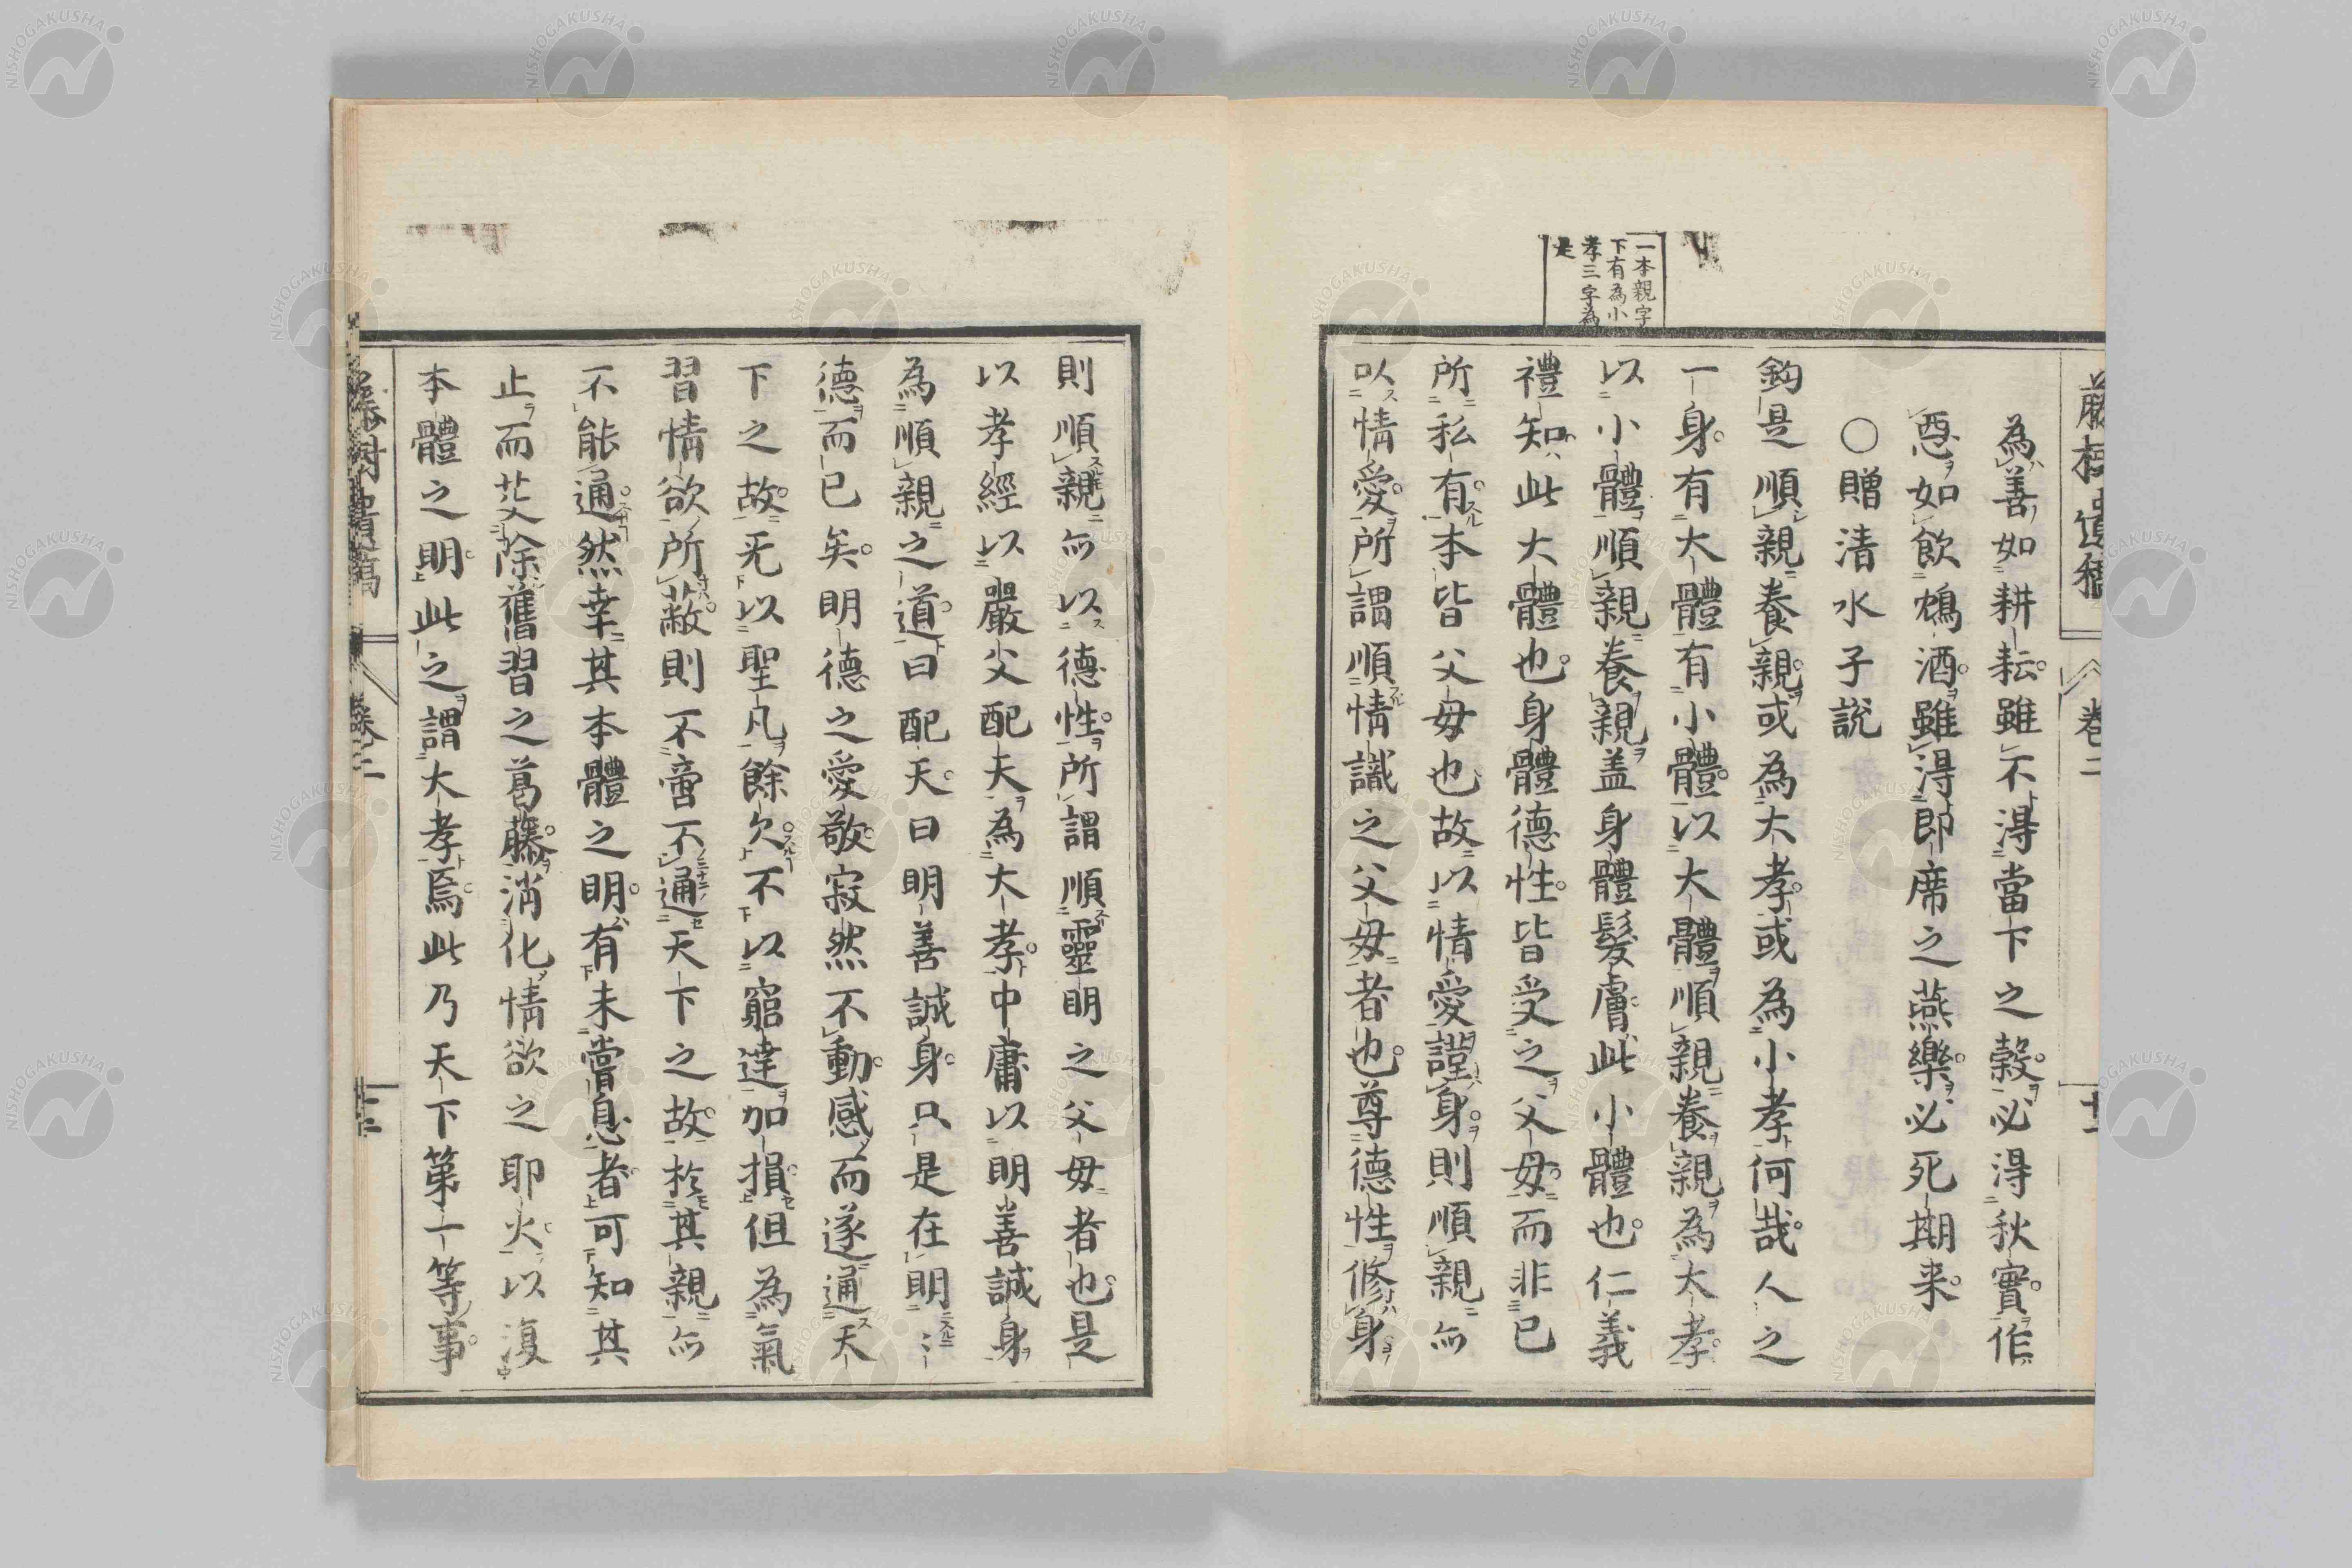 藤樹遺稿 卷二
一本親字
下有為小
孝三字為
是
為善如耕耘雖不得當下之穀必得秋實作
惡如飲鴆酒雖得即席之燕樂必死期来
○贈清水子說
鈞是順親養親或為大孝或為小孝何哉人之
一身有大體有小體以大體順親養親為大孝
以小體順親養親盖身體髮膚此小體也仁義
禮知此大體也身體德性皆受之父母而非已
所私有本皆父母也故以情愛謹身則順親而
以情愛所謂順情識之父母者也尊德性修身
則順親而以德性所謂順靈明之父母者也是
以孝經以嚴父配天為大孝中庸以明善誠身
為順親之道曰配天曰明善誠身只是在明明
德而已矣明德之愛敬寂然不動感而遂通天
下之故无以聖凡餘欠不以窮達加損但為氣
習情欲所蔽則不啻不通天下之故於其親而
不能通然幸其本體之明有未嘗息者可知其
止而芟除舊習之葛藤消化情欲之耶火以復
本體之明此之謂大孝焉此乃天下第一等事
藤樹遺稿 卷二 十二
NISHOGAKUSHA